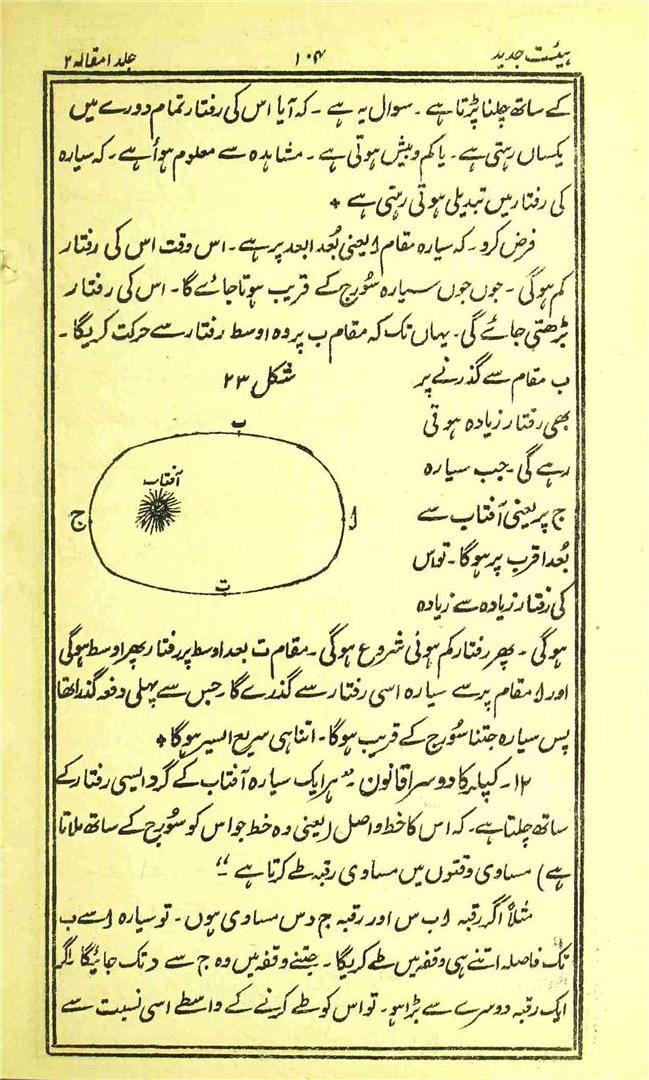 ہیئت جدید ۱۰۴ جلد ۱ مقالہ ۲
کے ساتھ چلنا پڑتا ہے ۔ سوال یہ ہے ۔ کہ آیا اس کی رفتار تمام دورے میں
یکساں رہتی ہے ۔ یا کم و بیش ہوتی ہے ۔ مشاہدہ سے معلوم ہوأ ہے ۔ کہ سیارہ
کی رفتار میں تبدیلی ہوتی رہتی ہے *
فرض کرو ۔ کہ سیارہ مقام ا یعنی بُعد ابعد پر ہے ۔ اس وقت اس کی رفتار
کم ہوگی ۔ جوں جوں سیارہ سُورج کے قریب ہوتا جائے گا ۔ اس کی رفتار
بڑھتی جائے گی ۔ یہاں تک کہ مقام ب پر وہ اوسط رفتار سے حرکت کریگا ۔
ب مقام سے گذرنے پر
شکل ۲۳
بھی رفتار زیادہ ہوتی
رہے گی ۔ جب سیارہ
ج پر یعنی آفتاب سے
بُعد اقرب پر ہوگا ۔ تو اس
کی رفتار زیادہ سے زیادہ
ب
آفتاب
ا
ج
ت
ہوگی ۔ پھر رفتار کم ہوئی شروع ہوگی ۔ مقام ت بعد اوسط پر رفتار پھر اوسط ہوگی
اور ا مقام پر سے سیارہ اسی رفتار سے گذرے گا جس سے پہلی دفعہ گذرا تھا
پس سیارہ جتنا سُورج کے قریب ہوگا ۔ اتنا ہی سریع السیر ہوگا *
۱۲ ۔ کپلر کا دوسرا قانون ۔ ”ہر ایک سیارہ آفتاب کے گرد ایسی رفتار کے
ساتھ چلتا ہے ۔ کہ اس کا خط واصل (یعنی وہ خط جو اس کو سُورج کے ساتھ ملاتا
ہے) مساوی وقتوں میں مساوی رقبہ طے کرتا ہے ۔“
مثلاً اگر رقبہ ا ب س اور رقبہ ج د س مساوی ہوں ۔ تو سیارہ ا سے ب
تک فاصلہ اتنے ہی وقفہ میں طے کریگا ۔ جتنے وقفہ میں وہ ج سے د تک جائیگا اگر
ایک رقبہ دوسرے سے بڑا ہو ۔ تو اس کو طے کرنے کے واسطے اسی نسبت سے